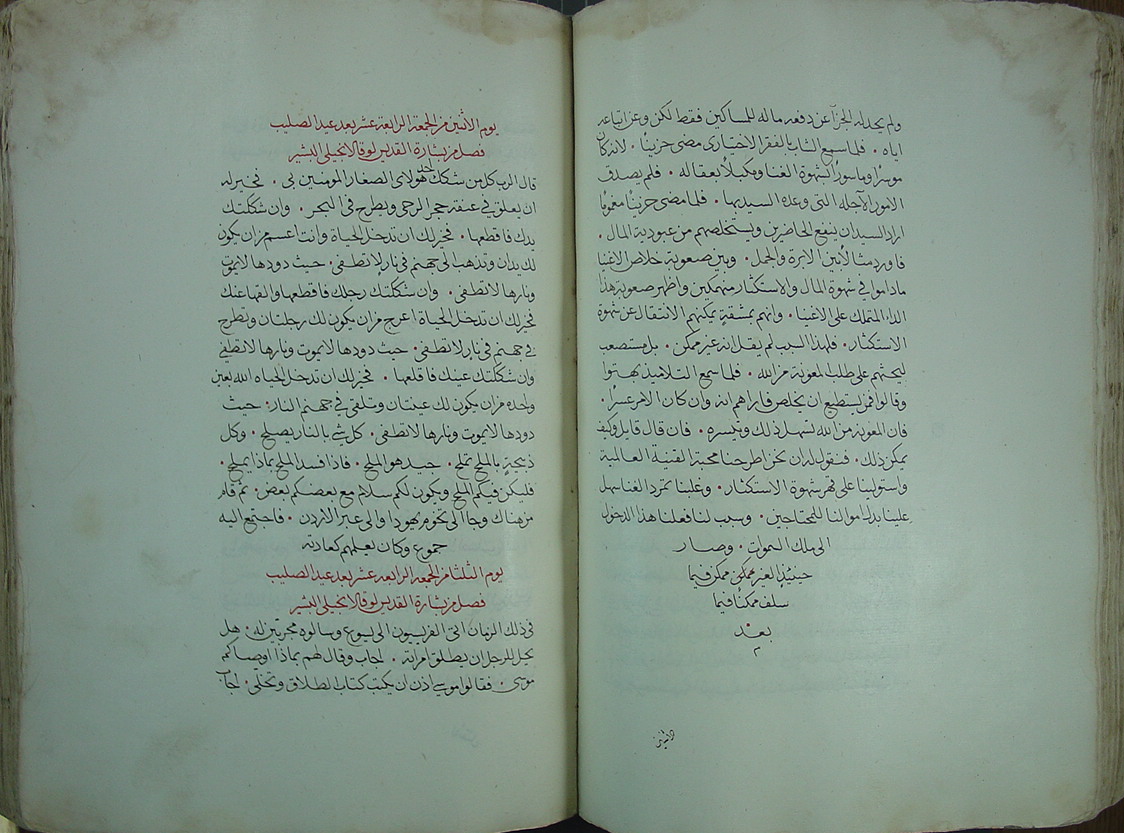 ولم يحد له الجزآ عن دفعه ماله للمساكين فقط لكن وعن اتباعه
اياه . فلما سمع الشاب الفقر الاختيارى مضى حزينا . لانه كان
موسرا وماسورا بشهوة الغنا ومكبلا بعقاله . فلم يصدق
الامور الآجله التى وعده السيد بها . فلما مضى حزينا مغموما
اراد السيد ان ينفع الحاضرين ويستخلصهم من عبودية المال .
فاورد مثالا بين الابرة والجمل . وبين صعوبة خلاص الاغنيا
ما داموا في شهوة المال والاستكثار منهمكين واظهر صعوبة هذا
الدا المتملك على الاغنيا . وانهم بمشقة يمكنهم الانتقال عن شهوة
الاستكثار . فلهذا السبب لم يقل انه غير ممكن . بل مستصعب
ليحثهم على طلب المعونة من الله . فلما سمع التلاميذ بهتوا
وقالوا فمن يستطيع ان يخلص فاراهم انه وان كان الامر عسرا .
فان المعونه من الله تسهل ذلك وتيسره . فان قال قايل وكيف
يمكن ذلك . فنقول له ان نحن اطرحنا محبة القنية العالمية
واستولينا على قهر شهوة الاستكثار . وغلبنا تمرد الغنا سهل
علينا بدل اموالنا للمحتاجين . وسبب لنا فعلنا هذا الدخول
الى ملك السموات . وصار
حينيذ الغير ممكن ممكن فيما
سلف ممكنا فيما
بعد
يوم الاثنين من الجمعة الرابعة عشر بعد عيد الصليب
فصل من بشارة القديس لوقا الانجيلى البشير
قال الرب كل من شكك احد هولاى الصغار المومنين بى . فخير له
ان يعلق في عنقه حجر الرحى ويطرح في البحر . وان شككتك
يدك فاقطعها . فخير لك ان تدخل الحياة وانت اعسم من ان يكون
لك يدان وتذهب الى جهنم في نار لا تطفى . حيث دودها لا يموت
ونارها لا تطفى . وان شككتك رجلك فاقطعها والقها عنك
فخير لك ان تدخل الحياة اعرج من ان يكون لك رجلتان وتطرح
في جهنم في نار لا تطفى . حيث دودها لا يموت ونارها لا تطفى
وان شككتك عينك فاقلعها . فخير لك ان تدخل الحياه الله بعين
واحده من ان يكون لك عينتان وتلقى في جهنم النار . حيث
دودها لا يموت ونارها لا تطفى . كل شي بالنار يصلح . وكل
ذبيحة بالملح تملح . جيد هو الملح . فاذا فسد الملح بماذا يملح .
فليكن فيكم الملح ويكون لكم سلام مع بعضكم بعض . ثم قام
من هناك وجا الى تخوم يهودا والى عبر الاردن . فاجتمع اليه
جموع وكان يعلمهم كعادته
يوم الثلثا من الجمعه الرابعه عشر بعد عيد الصليب
فصل من بشارة القديس لوقا الانجيلى البشير
فى ذلك الزمان اتى الفريسيون الى يسوع وسالوه مجربين له . هل
يحل للرجل ان يطلق امراته . اجاب وقال لهم بماذا اوصاكم
موسى . فقالوا موسى اذن ان يكتب كتاب الطلاق وتخلى . اجاب